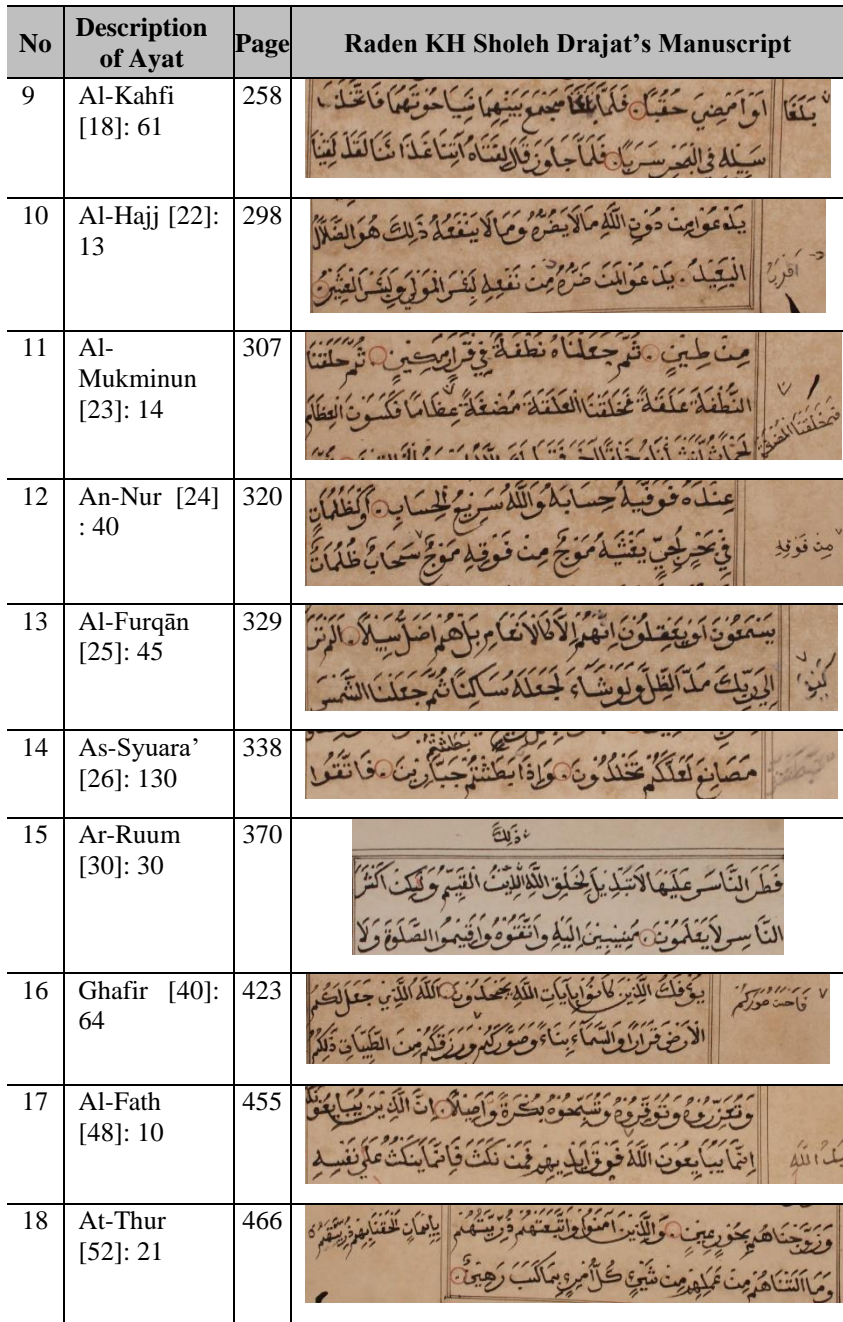 No Description of Ayat Page Raden KH Sholeh Drajat's Manuscript
9 Al-Kahfi [18]: 61 258
اَوْ اَمْضِيَ حُقُبًا فَلَمَّا بَلَغَا مَجْمَعَ بَيْنِهِمَا نَسِيَا حُوْتَهُمَا فَاتَّخَذَ
بَلَغَا
سَبِيْلَهُ فِي الْبَحْرِ سَرَبًا فَلَمَّا جَاوَزَ قَالَ لِفَتَاهُ اٰتِنَا غَدَاءَنَا لَقَدْ لَقِيْنَا
10 Al-Hajj [22]: 13 298
يَدْعُوْا مِنْ دُوْنِ اللّٰهِ مَالَا يَضُرُّهُ وَمَا لَا يَنْفَعُهُ ذٰلِكَ هُوَ الضَّلَالُ
الْبَعِيْدُ يَدْعُوْا لَمَنْ ضَرُّهُ مِنْ نَفْعِهِ لَبِئْسَ الْمَوْلٰى وَلَبِئْسَ الْعَشِيْرُ
اَقْرَبُ
11 Al-Mukminun [23]: 14 307
مِنْ طِيْنٍ ثُمَّ جَعَلْنَاهُ نُطْفَةً فِيْ قَرَارٍ مَكِيْنٍ ثُمَّ خَلَقْنَا
النُّطْفَةَ عَلَقَةً فَخَلَقْنَا الْعَلَقَةَ مُضْغَةً عِظَامًا فَكَسَوْنَا الْعِظَامَ
فَخَلَقْنَا الْمُضْغَةَ
12 An-Nur [24] : 40 320
عِنْدَهُ فَوَفّٰيهُ حِسَابَهُ وَاللّٰهُ سَرِيْعُ الْحِسَابِ اَوْ كَظُلُمَاتٍ
فِيْ بَحْرٍ لُّجِّيٍّ يَغْشٰيهُ مَوْجٌ مِنْ فَوْقِهِ مَوْجٌ سَحَابٌ ظُلُمَاتٌ
مِنْ فَوْقِهِ
13 Al-Furqān [25]: 45 329
يَسْمَعُوْنَ اَوْ يَعْقِلُوْنَ اِنْ هُمْ اِلَّا كَالْاَنْعَامِ بَلْ هُمْ اَضَلُّ سَبِيْلًا اَلَمْ تَرَ
اِلٰى رَبِّكَ مَدَّ الظِّلَّ وَلَوْ شَاءَ لَجَعَلَهُ سَاكِنًا ثُمَّ جَعَلْنَا الشَّمْسَ
كَيْفَ
14 As-Syuara' [26]: 130 338
بَطَشْتُمْ
مَصَانِعَ لَعَلَّكُمْ تَخْلُدُوْنَ وَاِذَا بَطَشْتُمْ جَبَّارِيْنَ فَاتَّقُوْا
15 Ar-Ruum [30]: 30 370
ذٰلِكَ
فَطَرَ النَّاسَ عَلَيْهَا لَا تَبْدِيْلَ لِخَلْقِ اللّٰهِ الدِّيْنُ الْقَيِّمُ وَلٰكِنَّ اَكْثَرَ
النَّاسِ لَا يَعْلَمُوْنَ مُنِيْبِيْنَ اِلَيْهِ وَاتَّقُوْهُ وَاَقِيْمُوا الصَّلٰوةَ وَلَا
16 Ghafir [40]: 64 423
يُؤْفَكُ الَّذِيْنَ كَانُوْا بِاٰيَاتِ اللّٰهِ يَجْحَدُوْنَ اَللّٰهُ الَّذِيْ جَعَلَ لَكُمُ
فَاَحْسَنَ صُوَرَكُمْ
الْاَرْضَ قَرَارًا وَالسَّمَاءَ بِنَاءً وَصَوَّرَكُمْ وَرَزَقَكُمْ مِنَ الطَّيِّبَاتِ ذٰلِكُمُ
17 Al-Fath [48]: 10 455
وَتُعَزِّرُوْهُ وَتُوَقِّرُوْهُ وَتُسَبِّحُوْهُ بُكْرَةً وَاَصِيْلًا اِنَّ الَّذِيْنَ يُبَايِعُوْنَكَ
اِنَّمَا يُبَايِعُوْنَ اللّٰهَ فَوْقَ اَيْدِيْهِمْ فَمَنْ نَكَثَ فَاِنَّمَا يَنْكُثُ عَلٰى نَفْسِهِ
يَدُ اللّٰهِ
18 At-Thur [52]: 21 466
وَزَوَّجْنَاهُمْ بِحُوْرٍ عِيْنٍ وَالَّذِيْنَ اٰمَنُوْا وَاتَّبَعَتْهُمْ ذُرِّيَّتُهُمْ
بِاِيْمَانٍ اَلْحَقْنَا بِهِمْ ذُرِّيَّتَهُمْ
وَمَا اَلَتْنَاهُمْ مِنْ عَمَلِهِمْ مِنْ شَيْءٍ كُلُّ امْرِئٍ بِمَا كَسَبَ رَهِيْنٌ